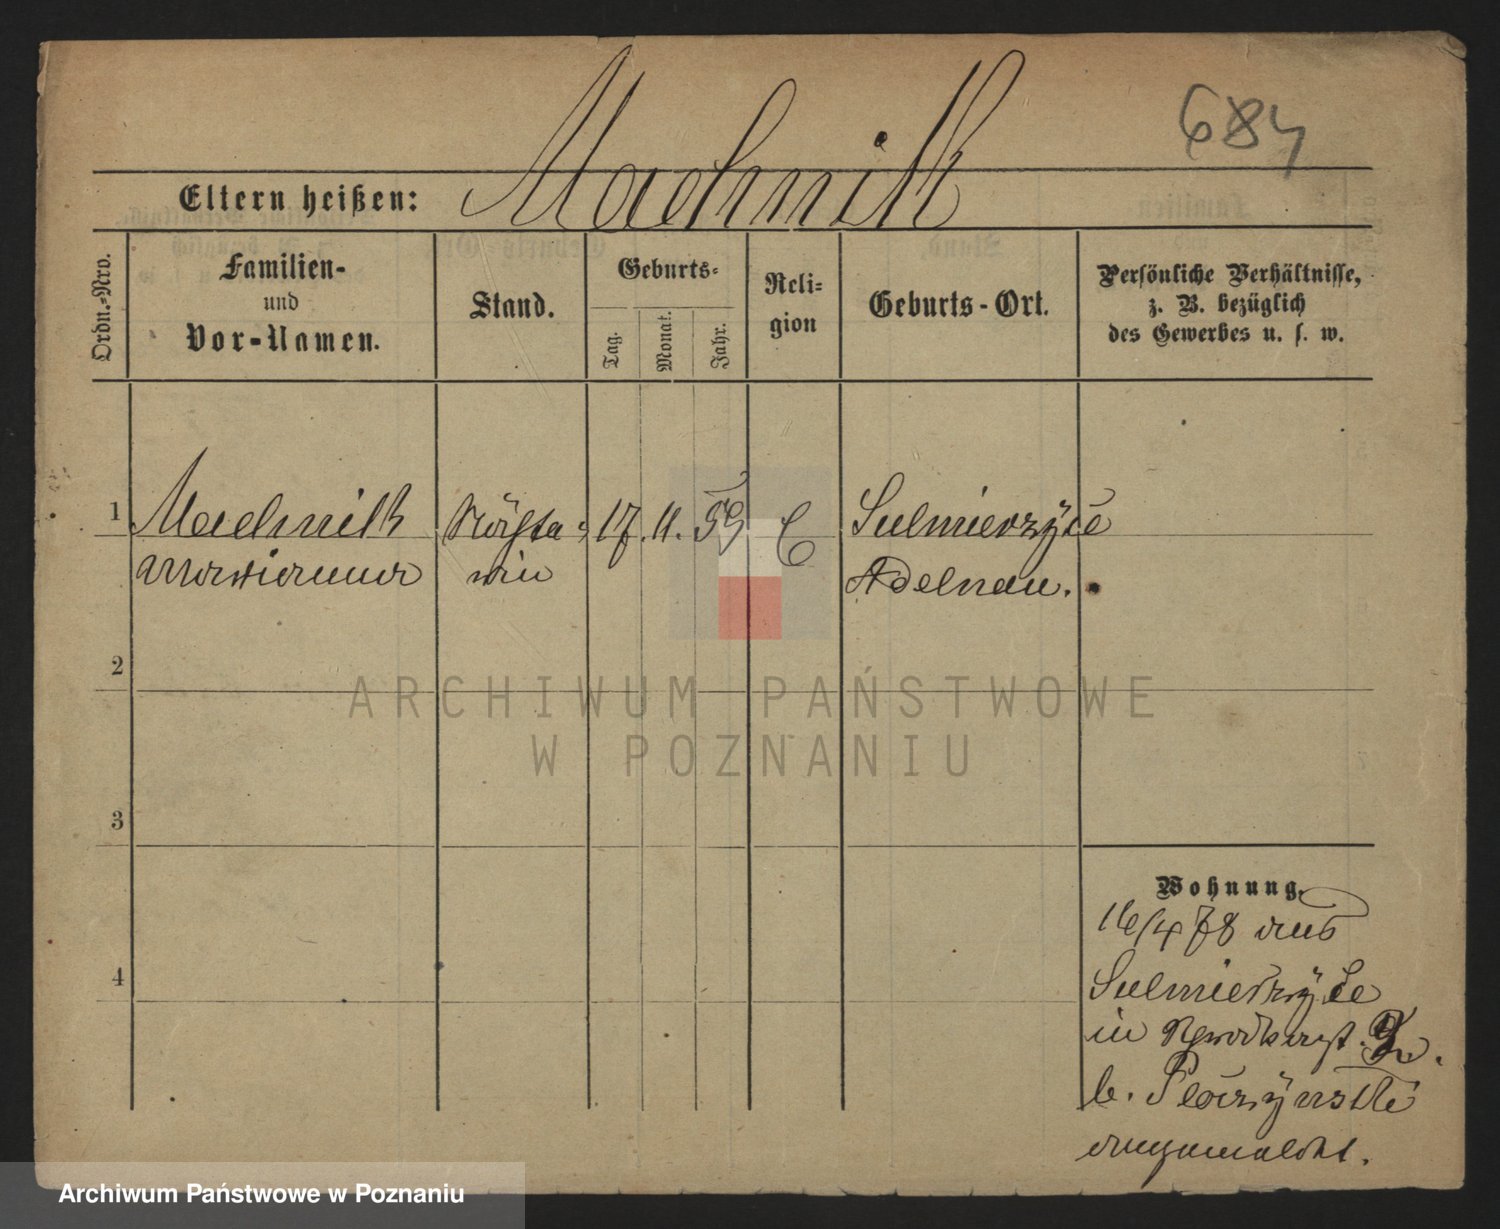 Machnik
684
Eltern heißen:
Ordn.-Nro.
Familien-
und
Vor-Namen.
Stand.
Geburts-
Tag.
Monat.
Jahr.
Reli-
gion
Geburts-Ort.
Persönliche Verhältnisse,
z. B. bezüglich
des Gewerbes u. s. w.
1
Machnik
Marianna
17. 11. 59
C
Sulmierzyce
Adelnau.
2
3
4
Wohnung.
16/4 78 aus
Sulmierzyce
in
b.
angemeldet.
ARCHIWUM PAŃSTWOWE
W POZNANIU
Archiwum Państwowe w Poznaniu